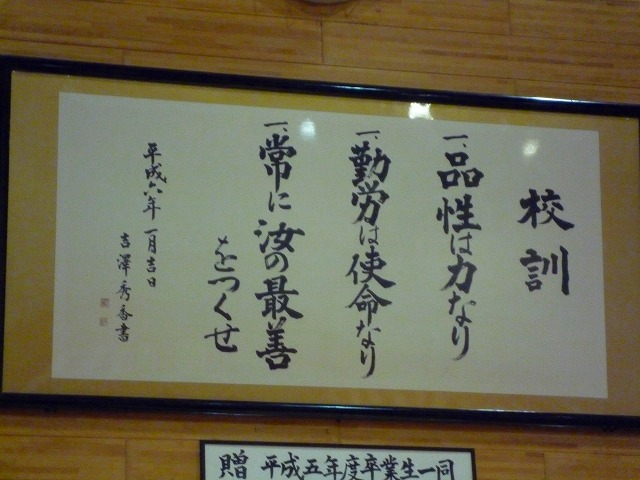 校訓
一、品性は力なり
一、勤労は使命なり
一、常に汝の最善
をつくせ
平成六年一月吉日
吉澤秀香書
贈 平成五年度卒業生一同